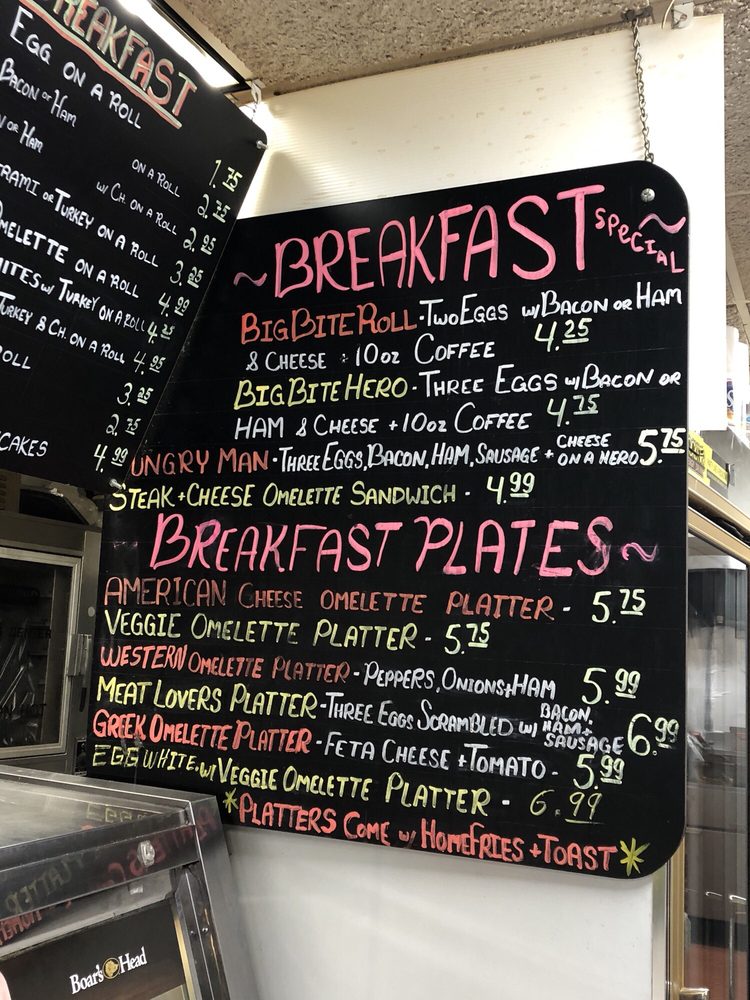 BREAKFAST
EGG ON A ROLL
BACON or HAM ON A ROLL 1.75
OR HAM w/ CH. ON A ROLL 2.75
OR TURKEY ON A ROLL 2.95
OMELETTE ON A ROLL 3.25
w/ TURKEY ON A ROLL 4.99
TURKEY & CH. ON A ROLL 4.25
ROLL 4.95
3.25
2.75
CAKES 4.99
~BREAKFAST SPECIAL~
BIG BITE ROLL - TWO EGGS w/ BACON OR HAM
& CHEESE + 10oz COFFEE 4.25
BIG BITE HERO - THREE EGGS w/ BACON OR
HAM & CHEESE + 10oz COFFEE 4.75
UNGRY MAN - THREE EGGS, BACON, HAM, SAUSAGE + CHEESE ON A HERO 5.75
STEAK + CHEESE OMELETTE SANDWICH - 4.99
~BREAKFAST PLATES~
AMERICAN CHEESE OMELETTE PLATTER - 5.75
VEGGIE OMELETTE PLATTER - 5.75
WESTERN OMELETTE PLATTER - PEPPERS, ONIONS + HAM 5.99
MEAT LOVERS PLATTER - THREE EGGS SCRAMBLED w/ BACON, HAM + SAUSAGE 6.99
GREEK OMELETTE PLATTER - FETA CHEESE + TOMATO - 5.99
EGG WHITE w/ VEGGIE OMELETTE PLATTER - 6.99
*PLATTERS COME w/ HOMEFRIES + TOAST*
Boar's Head